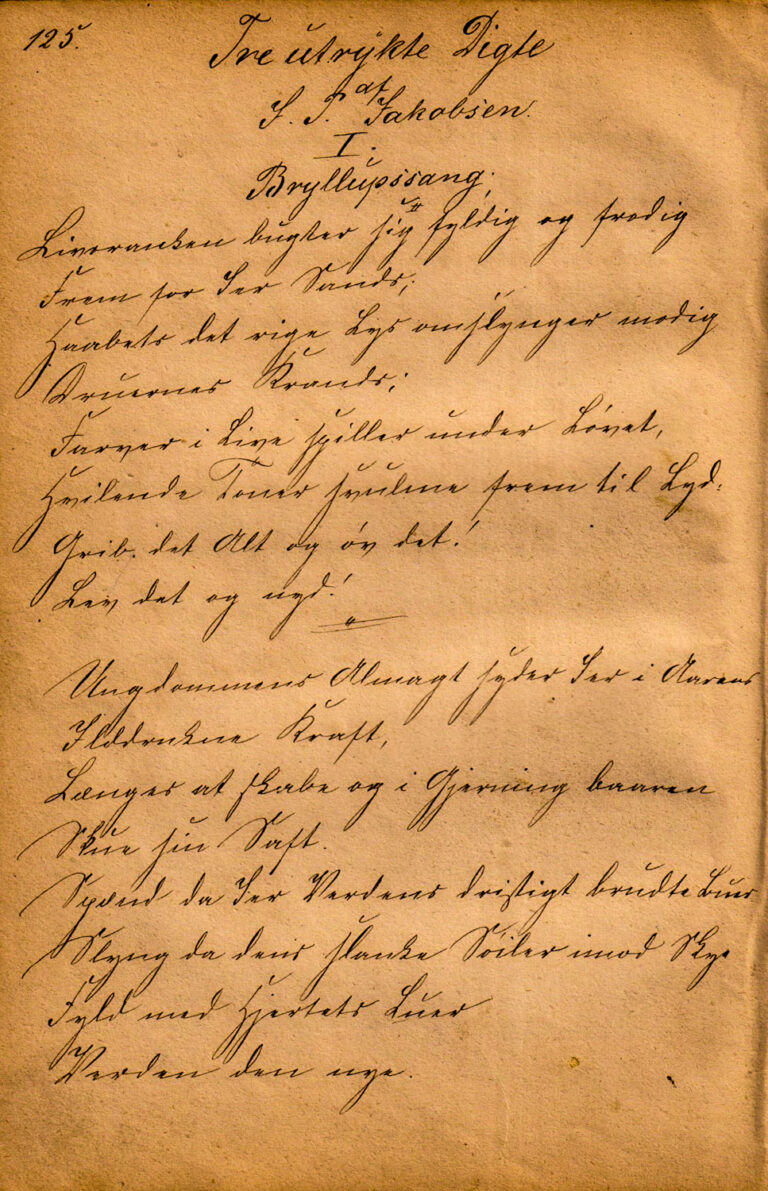 125.
Tre utrykte Digte
af
J. P. Jakobsen.
I.
Bryllupssang.
Livsranken bugter sig fyldig og frodig
Frem for Jer Sands;
Haabets det rige Lys omslynger modig
Druernes Krands;
Farver i Live spiller under Løvet,
Hvilende Toner svulme frem til Lyd.
Grib. det Alt og øv det!
Lev det og nyd!
Ungdommens Almagt syder Jer i Aarens
Ilddrukne Kraft,
Længes at skabe og i Gjerning baaren
Skue sin Saft.
Spænd da Jer Verdens dristigt brudte Buer
Slyng da dens slanke Søiler imod Sky
Fyld med Hjertets Luer
Verden den nye.